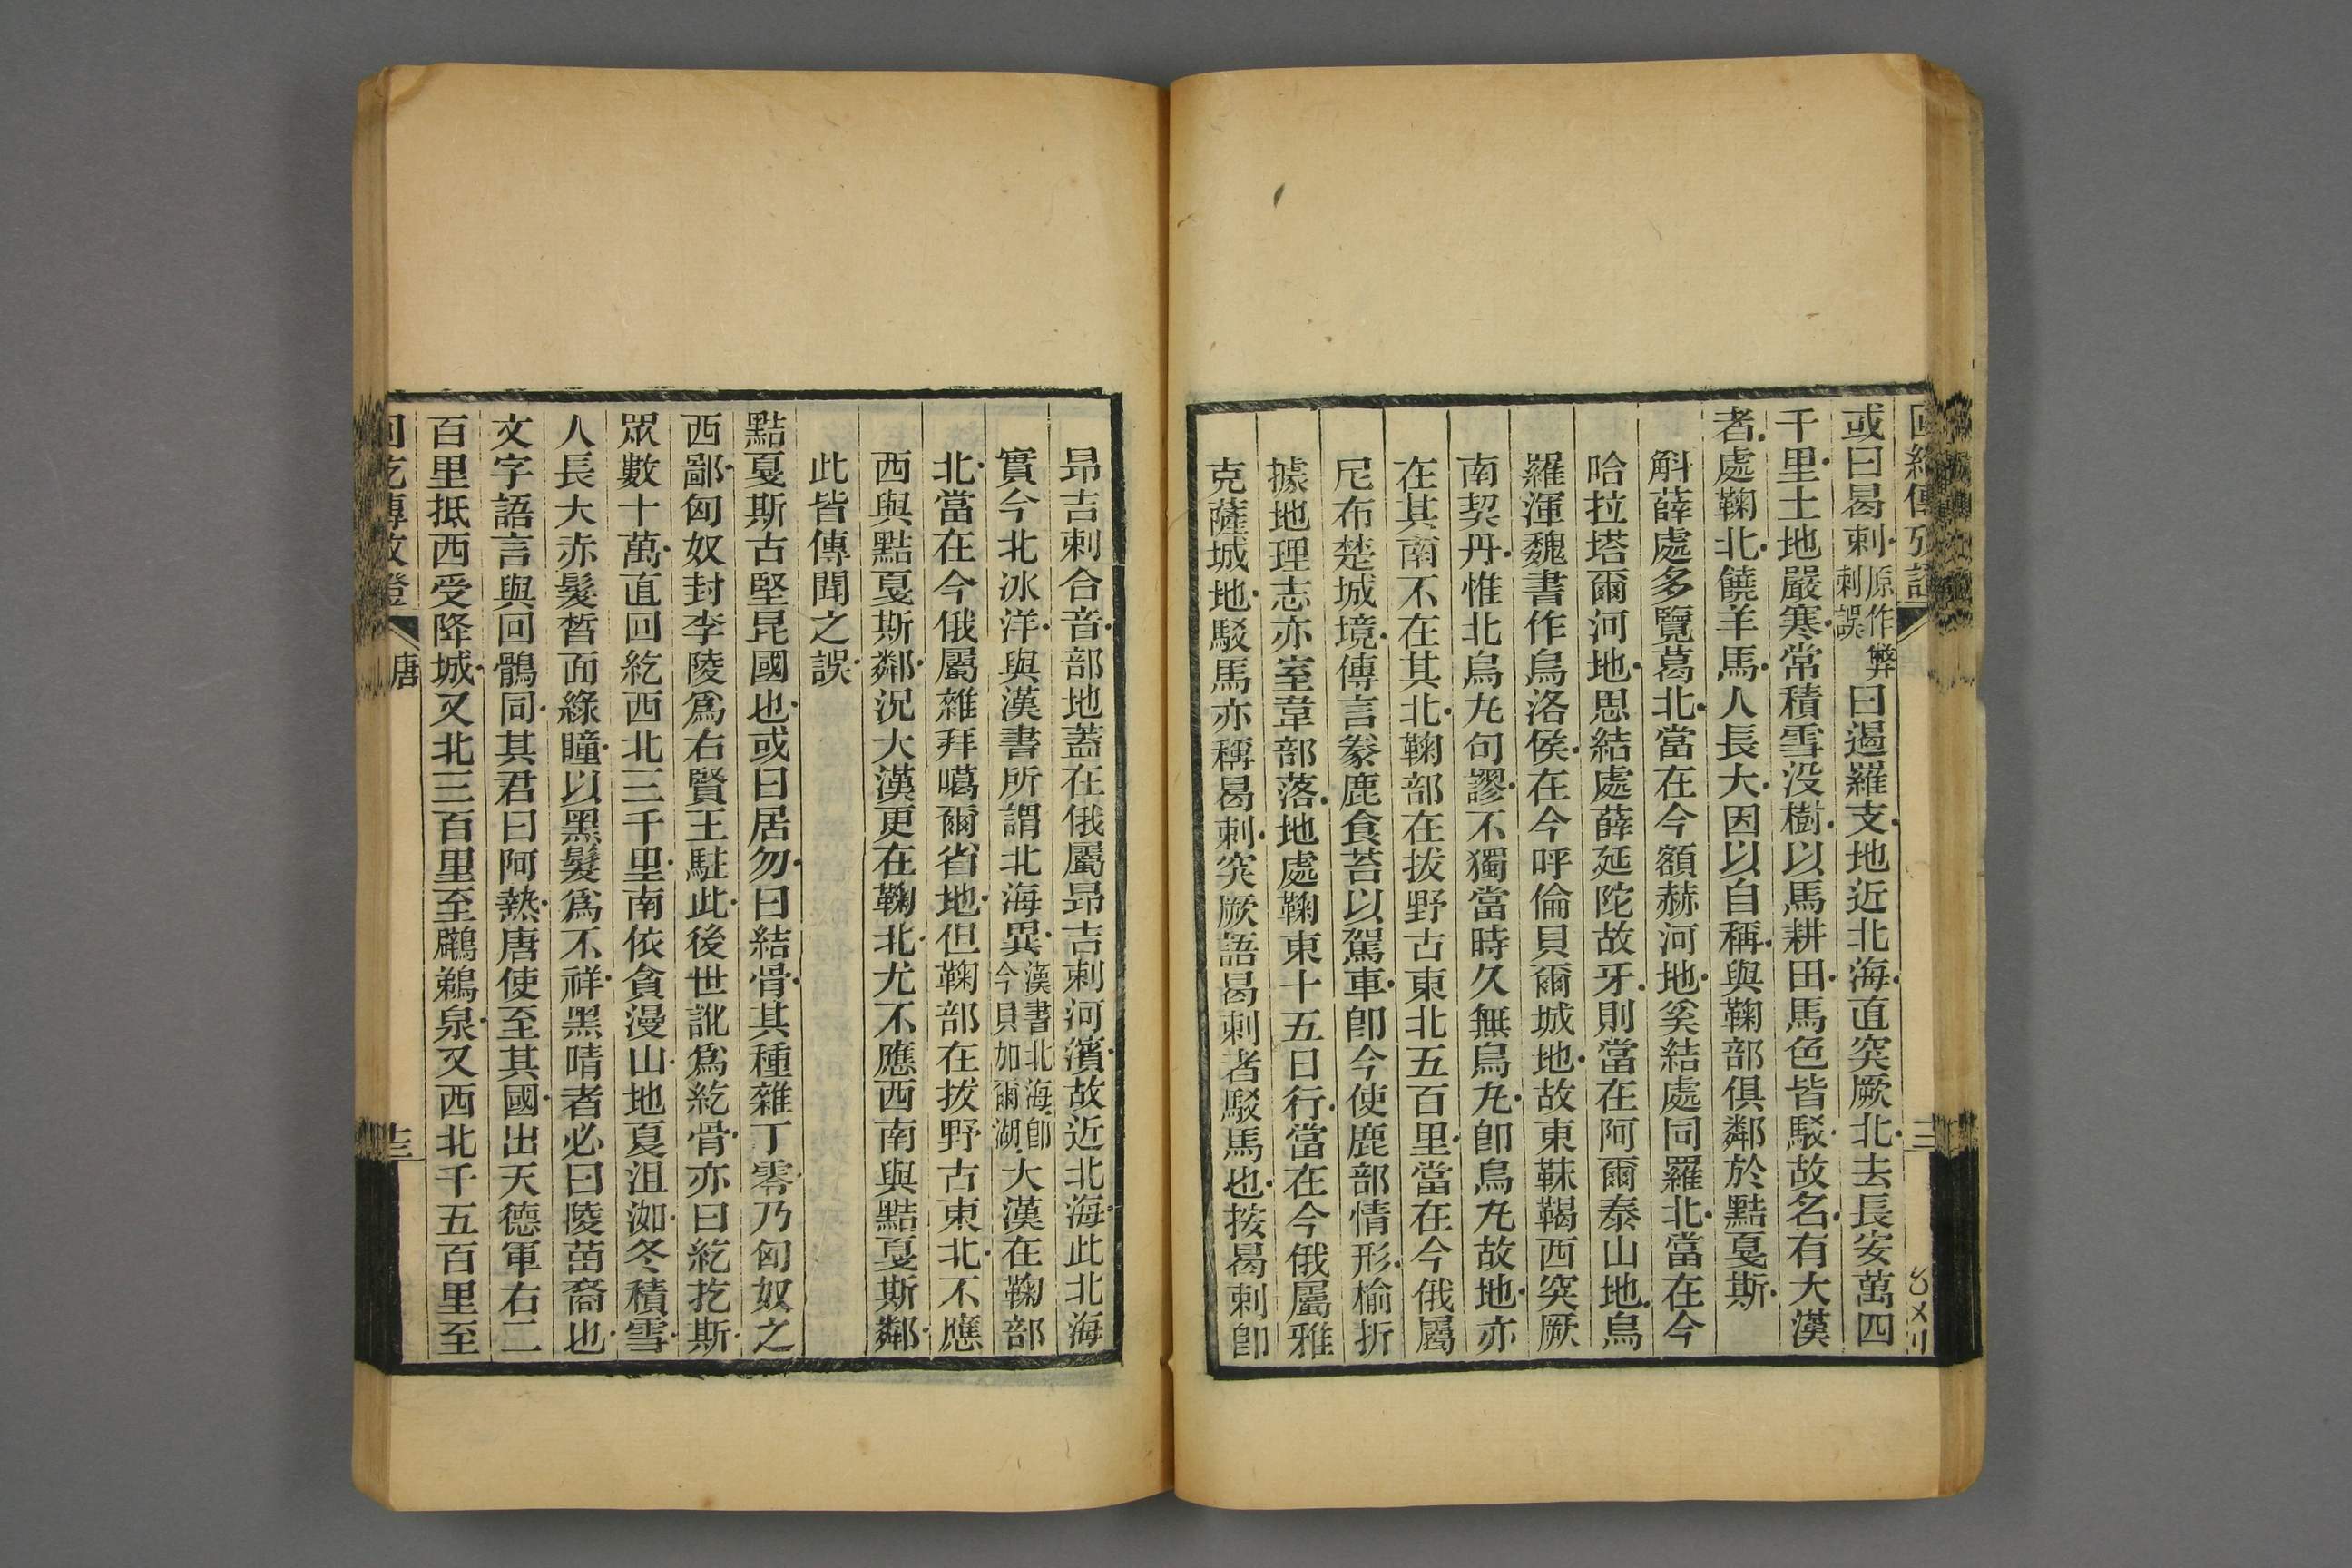 或曰曷剌原作弊剌誤曰遏羅支地近北海直突厥北去長安萬四
千里土地嚴寒常積雪没樹以馬耕田馬色皆駁故名有大漢
者處鞠北饒羊馬人長大因以自稱與鞠部俱鄰於點戛斯
斛薛處多覽葛北當在今額赫河地奚結處同羅北當在今
哈拉塔爾河地思結處薛延陀故牙則當在阿爾泰山地烏
羅渾魏書作烏洛侯在今呼倫貝爾城地故東靺鞨西突厥
南契丹惟北烏九句謬不獨當時久無烏九卽烏九故地亦
在其南不在其北鞠部在拔野古東北五百里當在今俄屬
尼布楚城境傳言豢鹿食苔以駕車卽今使鹿部情形榆折
據地理志亦室韋部落地處鞠東十五日行當在今俄屬雅
克薩城地駁馬亦稱曷剌突厥語曷剌者駁馬也按曷剌卽
昂吉剌合音部地蓋在俄屬昂吉剌河濱故近北海此北海
實今北冰洋與漢書所謂北海異漢書北海卽今貝加爾湖大漢在鞠部
北當在今俄屬雜拜噶爾省地但鞠部在拔野古東北不應
西與點戛斯鄰況大漢更在鞠北尤不應西南與點戛斯鄰
此皆傳聞之誤
點戛斯古堅昆國也或曰居勿曰結骨其種雜丁零乃匈奴之
西鄙匈奴封李陵爲右賢王駐此後世訛爲紇骨亦曰紇扢斯
眾數十萬直回紇西北三千里南依貪漫山地夏沮洳冬積雪
人長大赤髮皙面綠瞳以黑髮爲不祥黑睛者必曰陵苗裔也
文字語言與回鶻同其君曰阿熱唐使至其國出天德軍右二
百里抵西受降城又北三百里至鸊鵜泉又西北千五百里至
唐